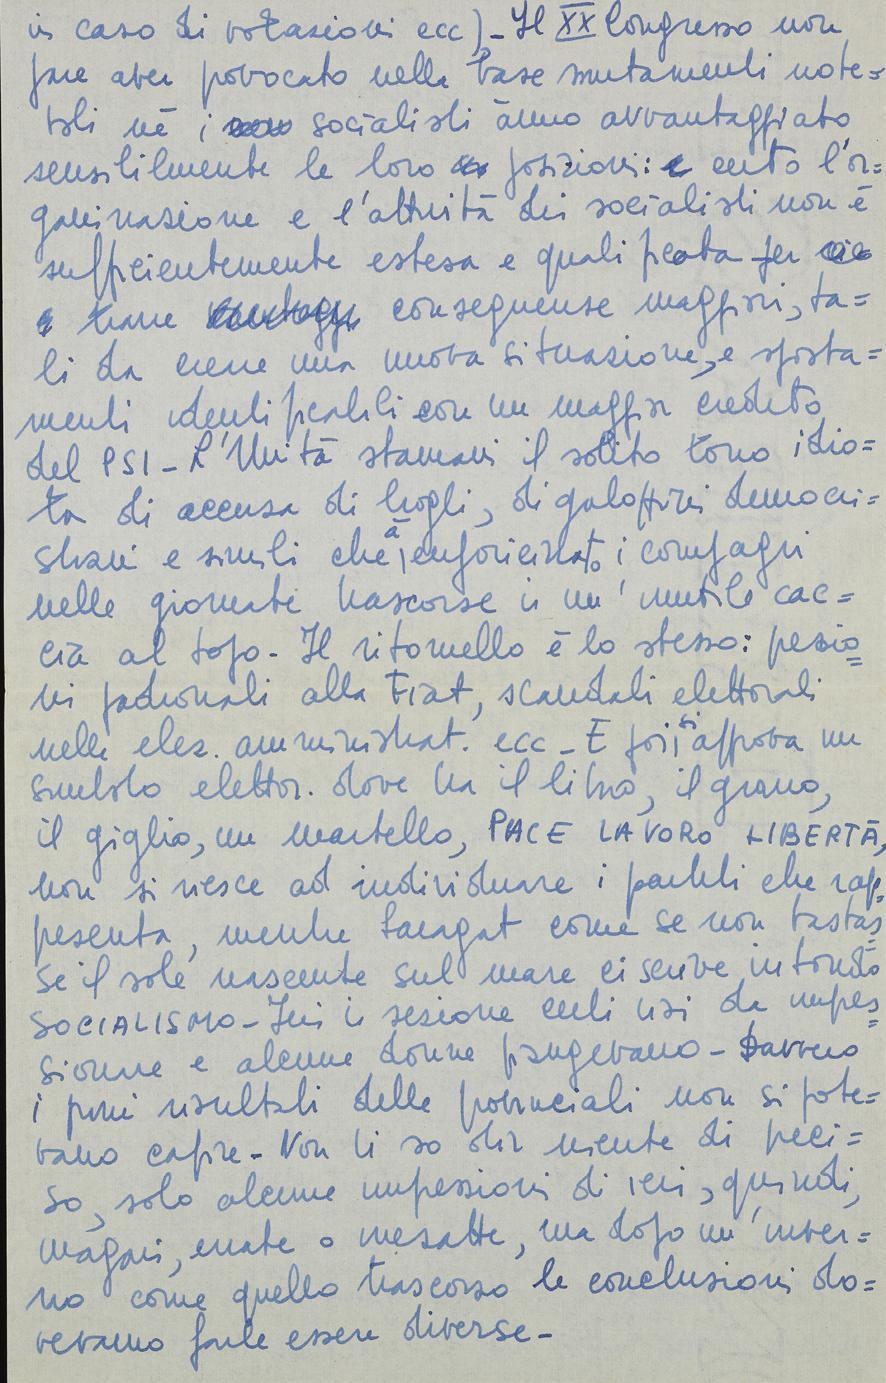 in caso di votazioni ecc) - Il XX Congresso non
pare aver provocato nella base mutamenti note=
voli nè i socialisti ànno avvantaggiato
sensibilmente le loro posizioni: certo l'or=
ganizzazione e l'attività dei socialisti non è
sufficientemente estesa e qualificata per
trarre conseguenze maggiori, ta=
li da creare una nuova situazione, e sposta=
menti identificabili con un maggior credito
del PSI - L'Unità stamani il solito tono idio=
ta di accusa di brogli, di galoppini democri=
stiani e simili che à i compagni
nelle giornate trascorse in un'inutile cac=
cia al topo - Il ritornello è lo stesso: pressio=
ni padronali alla Fiat, scandali elettorali
nelle elez. amministrat. ecc - E poi, si approva un
simbolo elettor. dove tra il libro, il grano,
il giglio, un martello, PACE LAVORO LIBERTÀ,
non si riesce ad individuare i partiti che rap=
presenta, mentre Saragat come se non bastas=
se il sole nascente sul mare ci scrive in tondo
SOCIALISMO - Ieri in sezione certi visi da impres=
sionare e alcune donne piangevano - Davvero
i primi risultati delle provinciali non si pote=
vano capire - Non ti so dir niente di preci=
so, solo alcune impressioni di ieri, quindi,
magari, errate o inesatte, ma dopo un'inver=
no come quello trascorso le conclusioni do=
vevamo farle essere diverse -